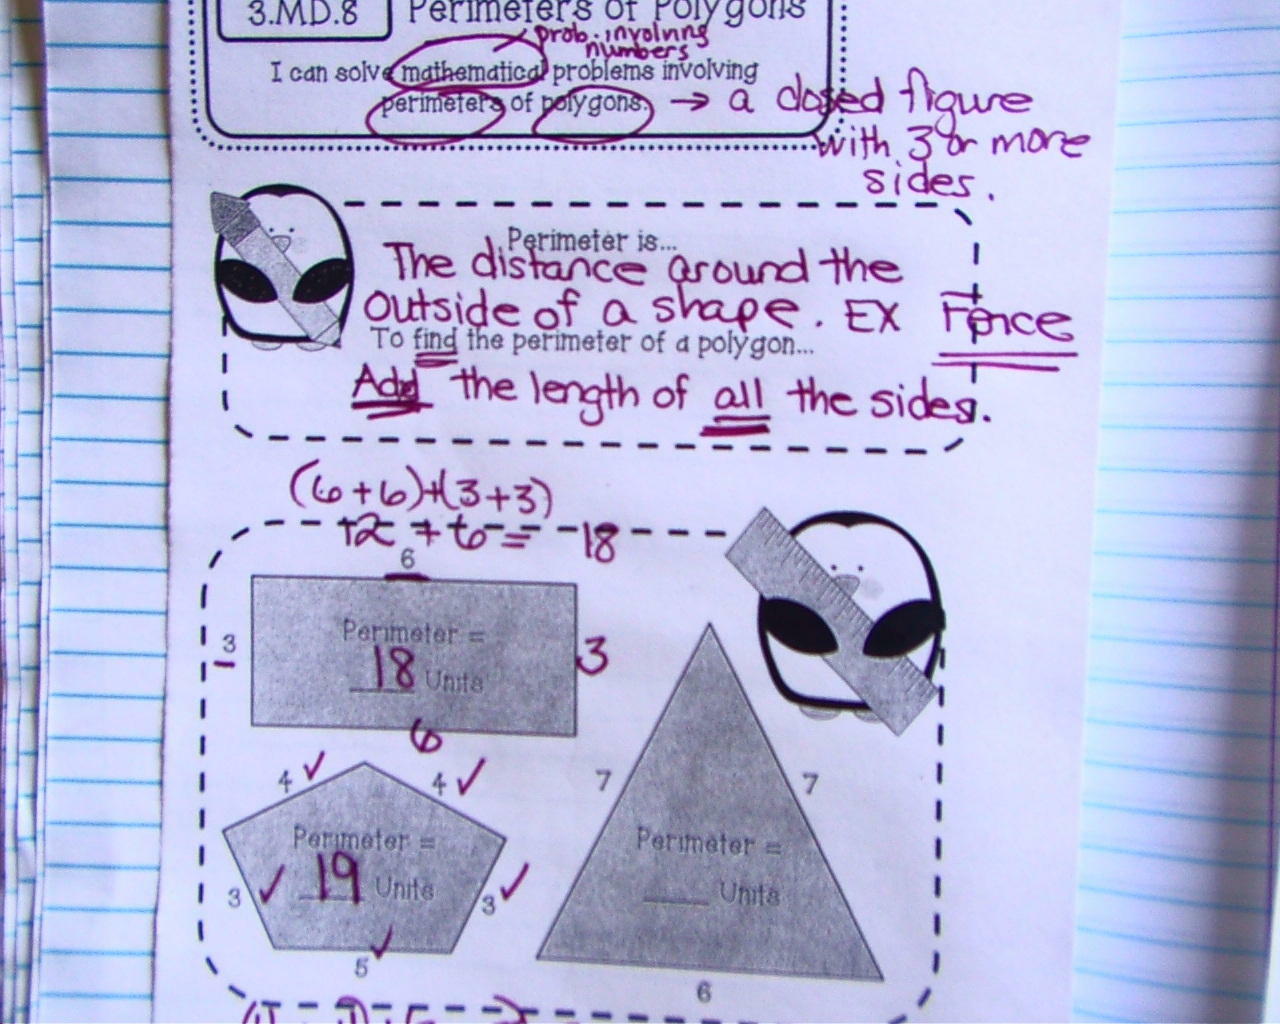 3.MD.8
Perimeters of Polygons
prob. involving
numbers
I can solve mathematical problems involving
perimeters of polygons. → a closed figure
with 3 or more
sides.
Perimeter is...
The distance around the
outside of a shape. EX Fence
To find the perimeter of a polygon...
Add the length of all the sides.
(6+6)+(3+3)
12 + 6 = 18
6
3
Perimeter =
18 Units
3
6
4 ✓ 4 ✓
Perimeter =
19 Units
3 ✓ 3 ✓
✓
5
7 7
Perimeter =
____ Units
6